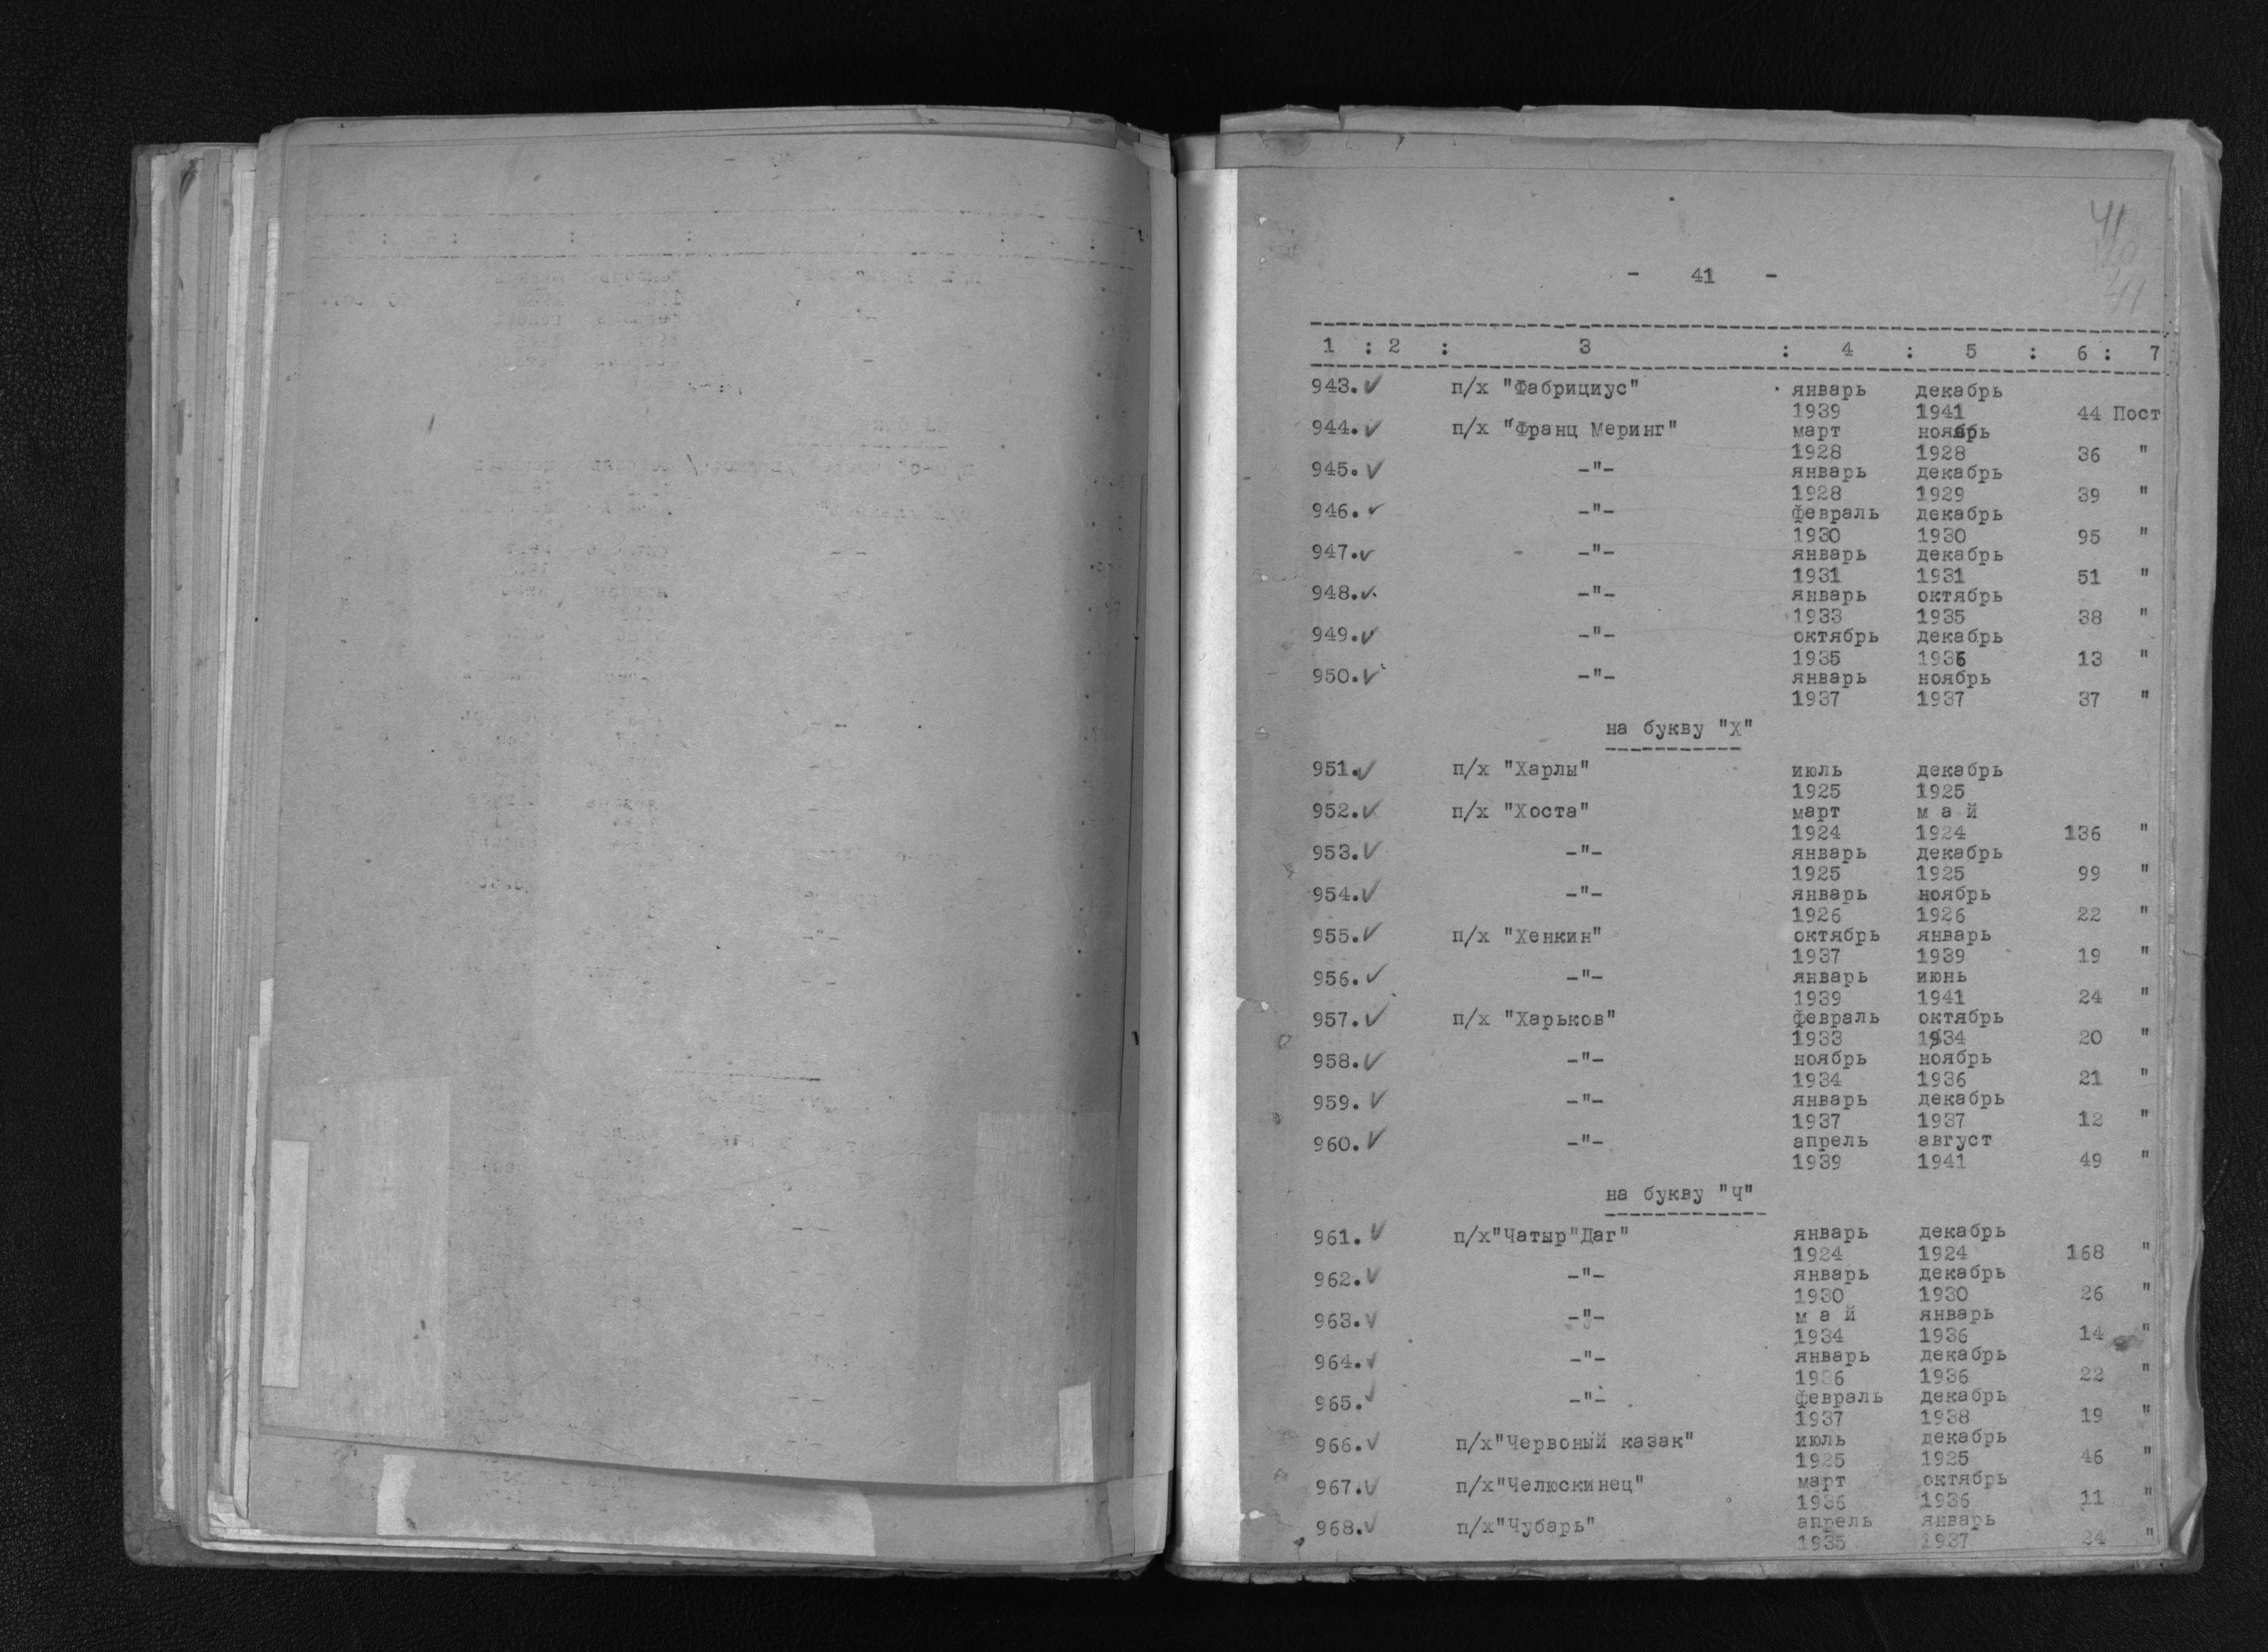 41
41
- 41 -
1 : 2 : 3 : 4 : 5 : 6 : 7
943. ✓ п/х "Фабрициус" январь декабрь
1939 1941 44 Пост
944. ✓ п/х "Франц Меринг" март ноябрь
1928 1928 36 "
945. ✓ -"- январь декабрь
1928 1929 39 "
946. ✓ -"- февраль декабрь
1930 1930 95 "
947. ✓ -"- январь декабрь
1931 1931 51 "
948. ✓ -"- январь октябрь
1933 1935 38 "
949. ✓ -"- октябрь декабрь
1935 1936 13 "
950. ✓ -"- январь ноябрь
1937 1937 37 "
на букву "Х"
951. ✓ п/х "Харлы" июль декабрь
1925 1925
952. ✓ п/х "Хоста" март м а й
1924 1924 136 "
953. ✓ -"- январь декабрь
1925 1925 99 "
954. ✓ -"- январь ноябрь
1926 1926 22 "
955. ✓ п/х "Хенкин" октябрь январь
1937 1939 19 "
956. ✓ -"- январь июнь
1939 1941 24 "
957. ✓ п/х "Харьков" февраль октябрь
1933 1934 20 "
958. ✓ -"- ноябрь ноябрь
1934 1936 21 "
959. ✓ -"- январь декабрь
1937 1937 12 "
960. ✓ -"- апрель август
1939 1941 49 "
на букву "Ч"
961. ✓ п/х"Чатыр"Даг" январь декабрь
1924 1924 168 "
962. ✓ -"- январь декабрь
1930 1930 26 "
963. ✓ -"- м а й январь
1934 1936 14 "
964. ✓ -"- январь декабрь
1936 1936 22 "
965. ✓ -"- февраль декабрь
1937 1938 19 "
966. ✓ п/х"Червоный казак" июль декабрь
1925 1925 46 "
967. ✓ п/х"Челюскинец" март октябрь
1936 1936 11 "
968. ✓ п/х"Чубарь" апрель январь
1935 1937 24 "